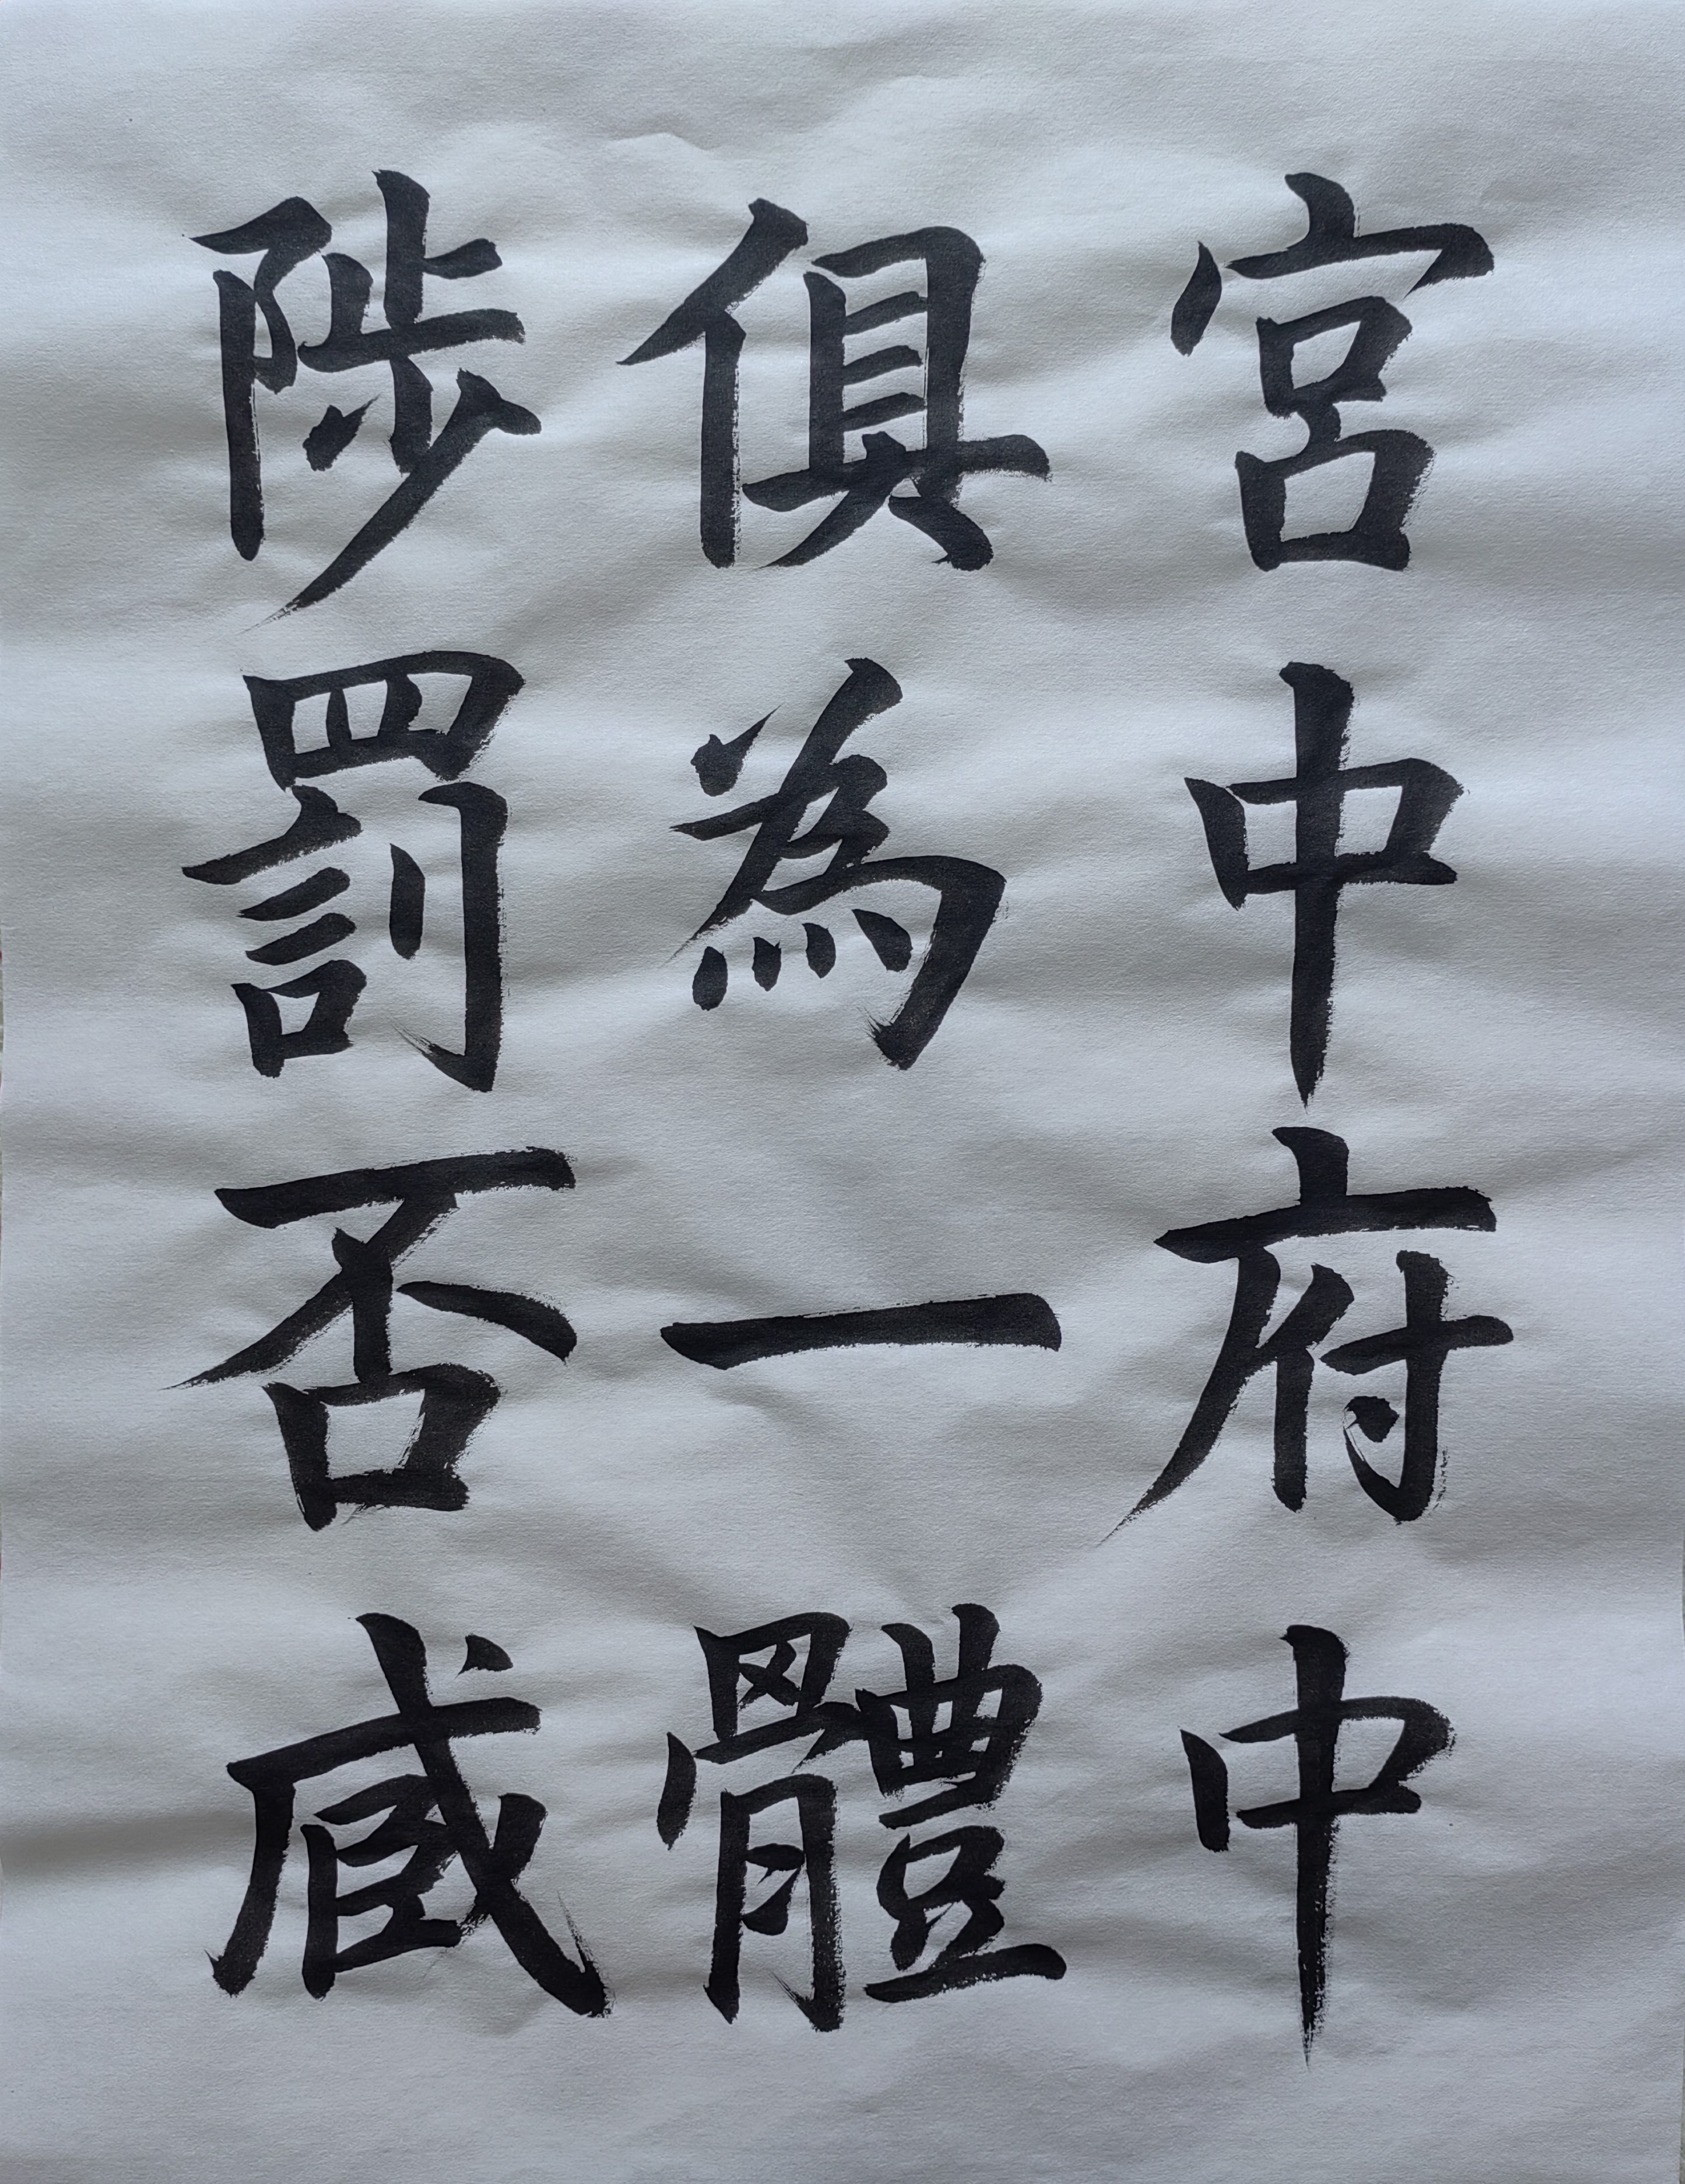 宮中府中
俱為一體
陟罰否臧